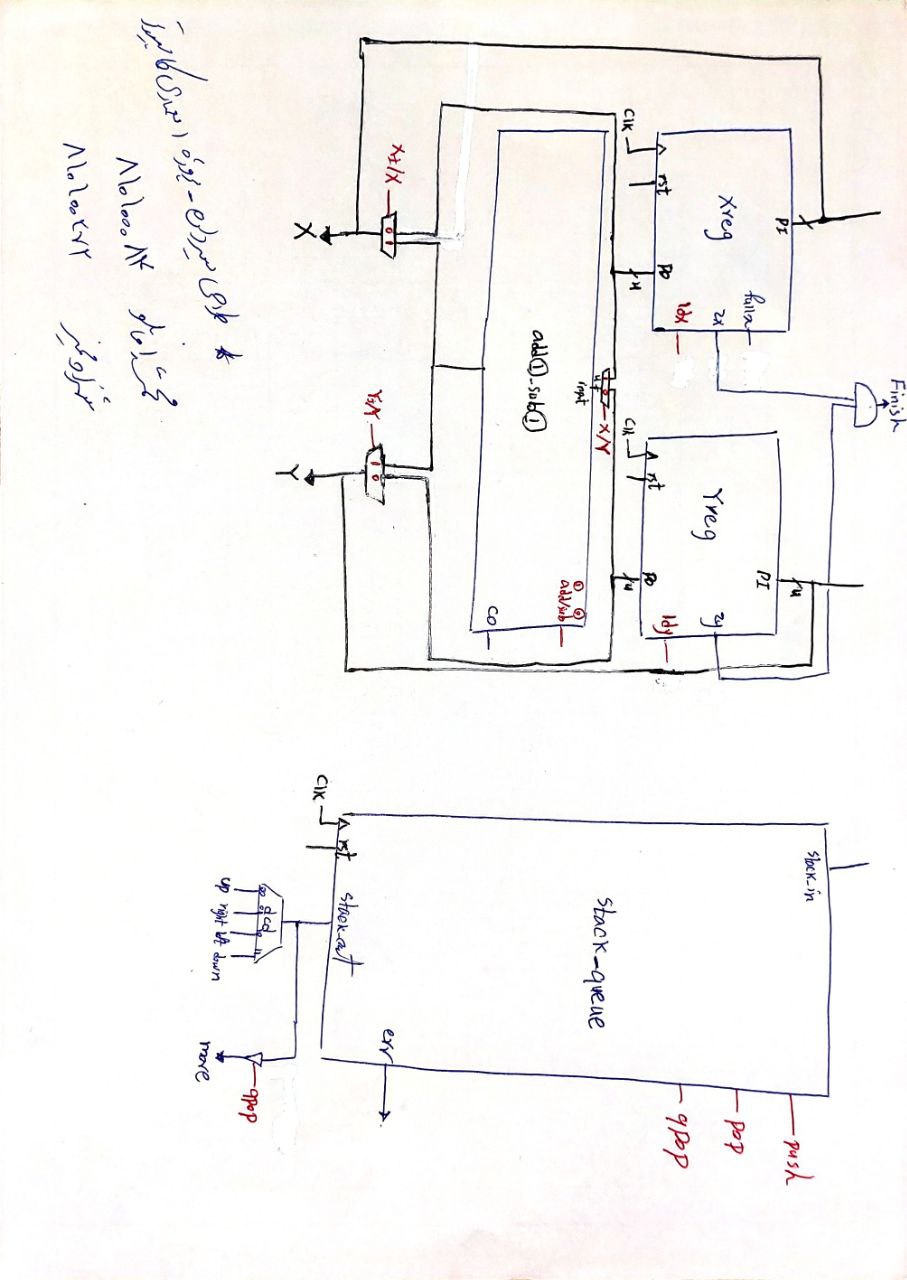 Finish
PI
fullx
Xreg
zx
ldx
clk
rst
PO
4
PI
4
Yreg
zy
ldy
clk
rst
PO
4
X/Y
4
input
1 0
add/sub
add①_sub①
CO
XI/X
0 1
YI/Y
1 0
X
Y
stack_in
push
pop
qpop
stack_queue
err
clk
rst
stack_out
dcd
00
11
up right left down
qpop
move
* طراحی مسیر داده - پروژه ۱ معماری کامپیوتر
۸۱۰۱۰۰۰۸۴
۸۱۰۱۰۰۲۷۲